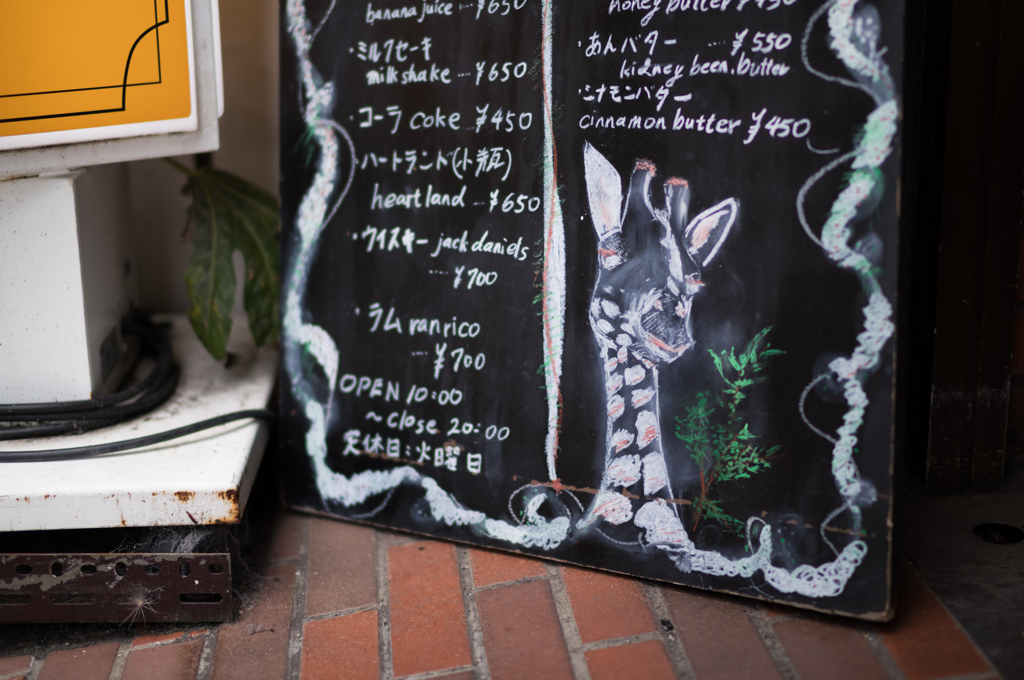 banana juice ‥ ¥650
・ミルクセーキ
milkshake … ¥650
・コーラ coke … ¥450
・ハートランド(小瓶)
heartland … ¥650
・ウイスキー jack daniels
….. ¥700
・ラム ronrico
… ¥700
OPEN 10:00
~close 20:00
定休日:火曜日
honey butter ¥450
・あんバター …. ¥550
kidney been.butter
・シナモンバター
cinnamon butter ¥450